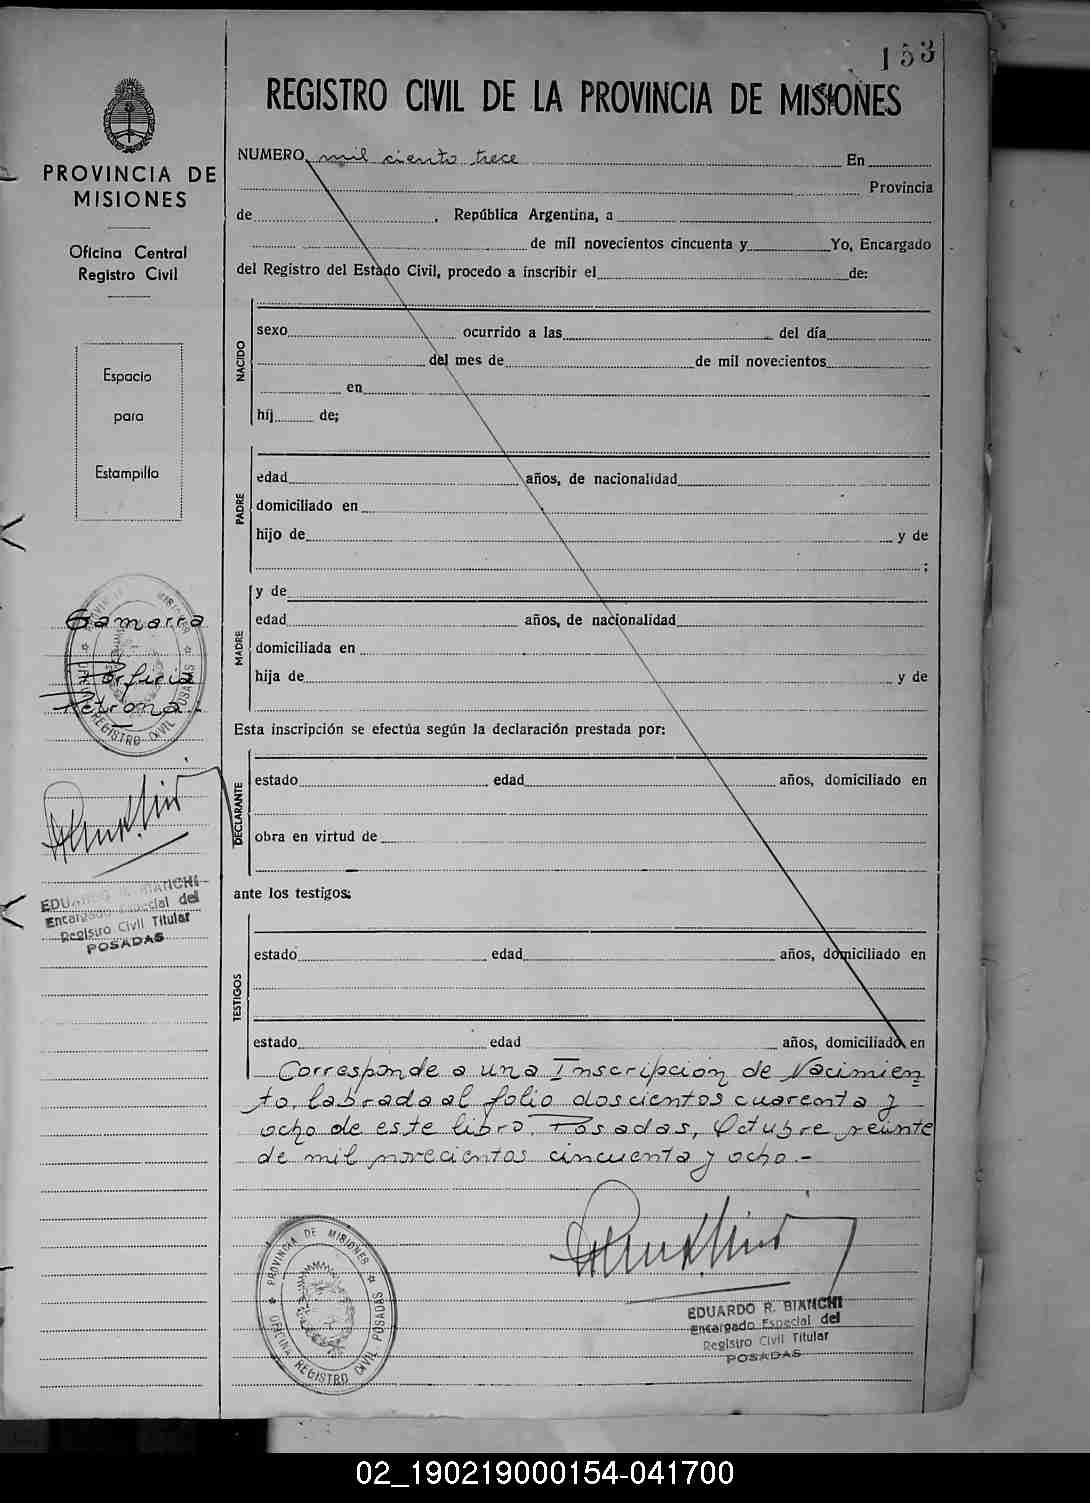 153
REGISTRO CIVIL DE LA PROVINCIA DE MISIONES
PROVINCIA DE
MISIONES
Oficina Central
Registro Civil
Espacio
para
Estampilla
Gamarra
Porfiria
Petrona.-
PROVINCIA DE MISIONES
OFICINA REGISTRO CIVIL POSADAS
EDUARDO R. BIANCHI
Encargado Especial del
Registro Civil Titular
POSADAS
NUMERO mil ciento trece En
Provincia
de , República Argentina, a
de mil novecientos cincuenta y Yo, Encargado
del Registro del Estado Civil, procedo a inscribir el de:
NACIDO
sexo ocurrido a las del día
del mes de de mil novecientos
en
hij de;
PADRE
edad años, de nacionalidad
domiciliado en
hijo de y de
;
MADRE
y de
edad años, de nacionalidad
domiciliada en
hija de y de
Esta inscripción se efectúa según la declaración prestada por:
DECLARANTE
estado edad años, domiciliado en
obra en virtud de
ante los testigos:
TESTIGOS
estado edad años, domiciliado en
estado edad años, domiciliado en
Corresponde a una Inscripción de Nacimien
to, labrada al folio doscientos cuarenta y
ocho de este libro. Posadas, Octubre veinte
de mil novecientos cincuenta y ocho.-
PROVINCIA DE MISIONES
OFICINA REGISTRO CIVIL POSADAS
EDUARDO R. BIANCHI
Encargado Especial del
Registro Civil Titular
POSADAS
02_190219000154-041700